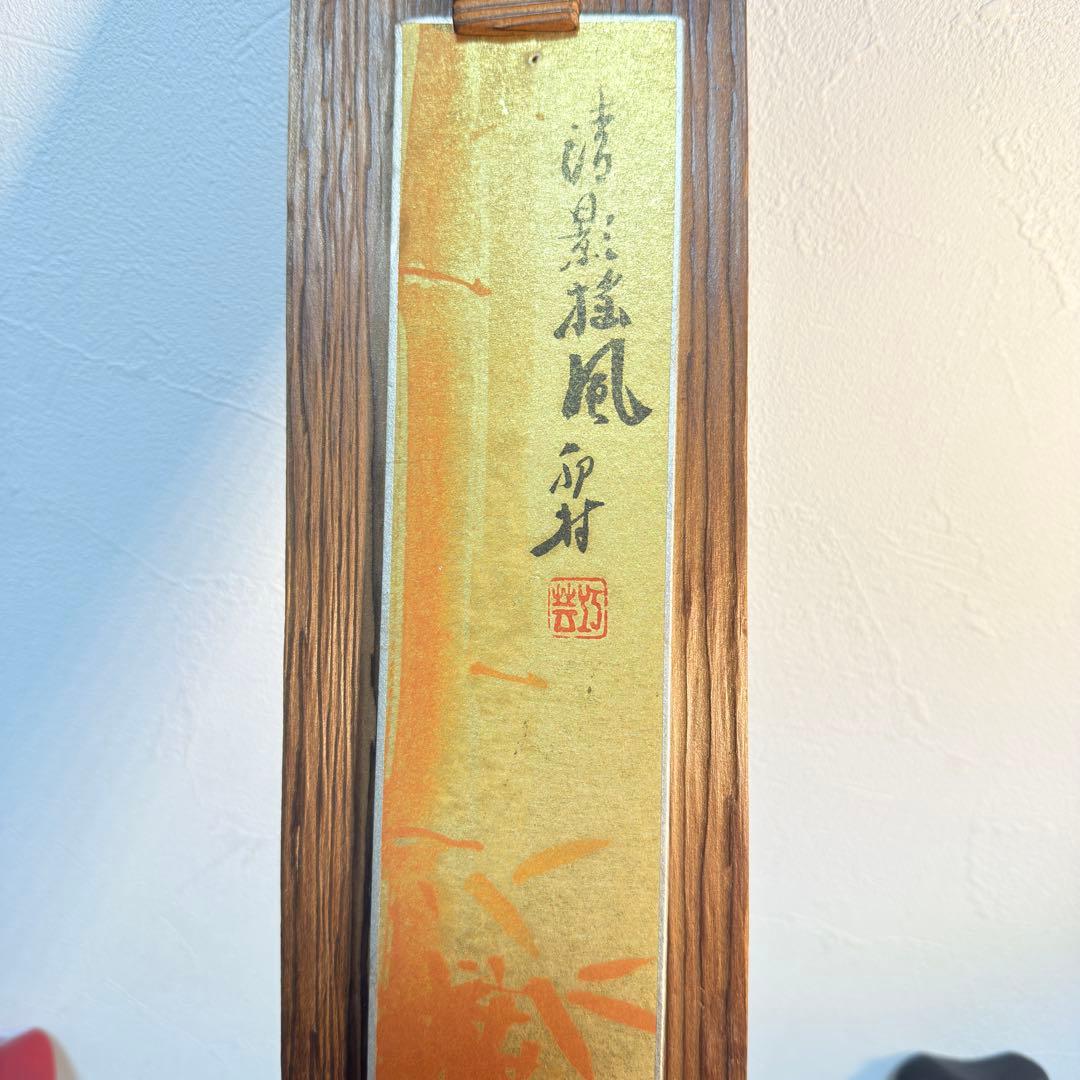 清影揺風
卯村
巧芸